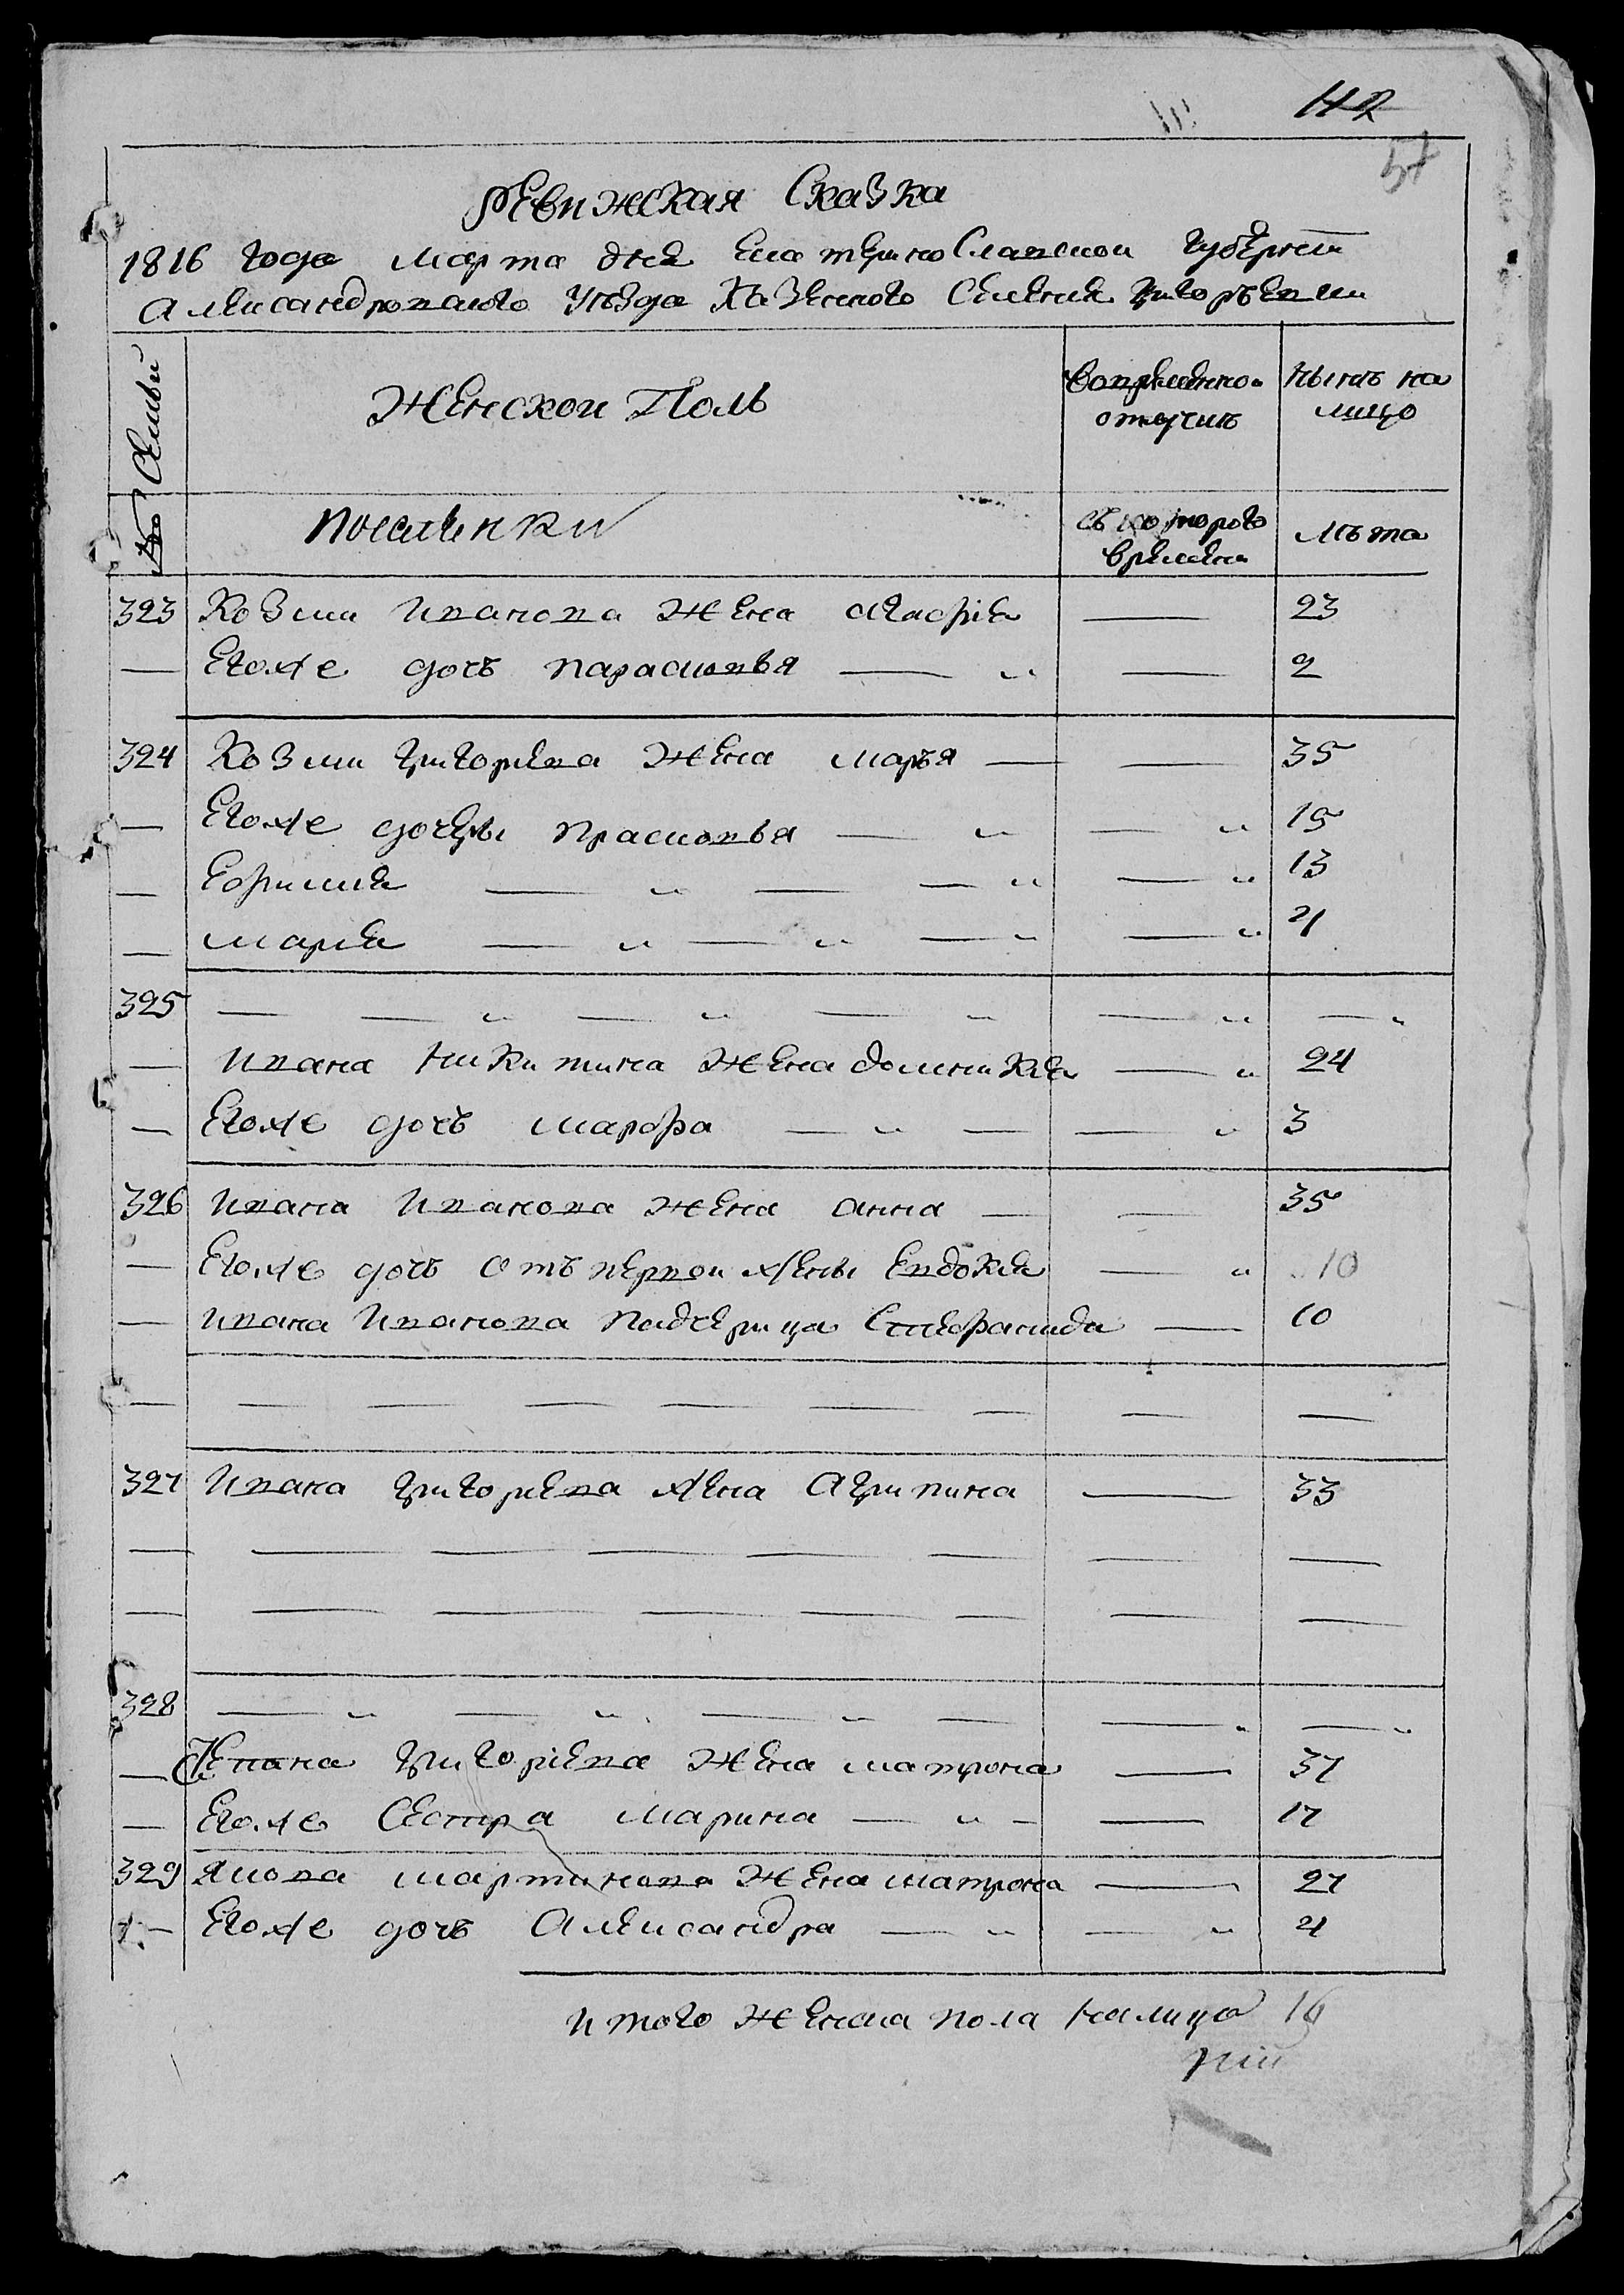 112
57
Ревижская Сказка
1816 года марта дня Екатеринославской губернiи
александровского уезда Казенного Селения григорьевки
№ Семьи
Женской Полъ
Вовременно отлучке
ныне на лицо
поселенки
съ которого времени
лѣта
323 Козми Иванова жена 23
Егоже дочь парасковья 2
324 Козми григориева жена марья 35
Егоже дочери прасковья 15
Ефимия 13
мария 4
325
ивана никитина жена домникия 24
Егоже дочь марфа 3
326 ивана иванова жена анна 35
Егоже дочь отъ первой жены Евдокия 10
ивана иванова падчерица Стефанида 10
327 ивана григориева жена агрипина 33
328
Степана григорiева жена матрона 37
Егоже Сестра марина 17
329 якова мартинова жена матрона 27
Егоже дочь александра 4
итого женска пола налицо 16